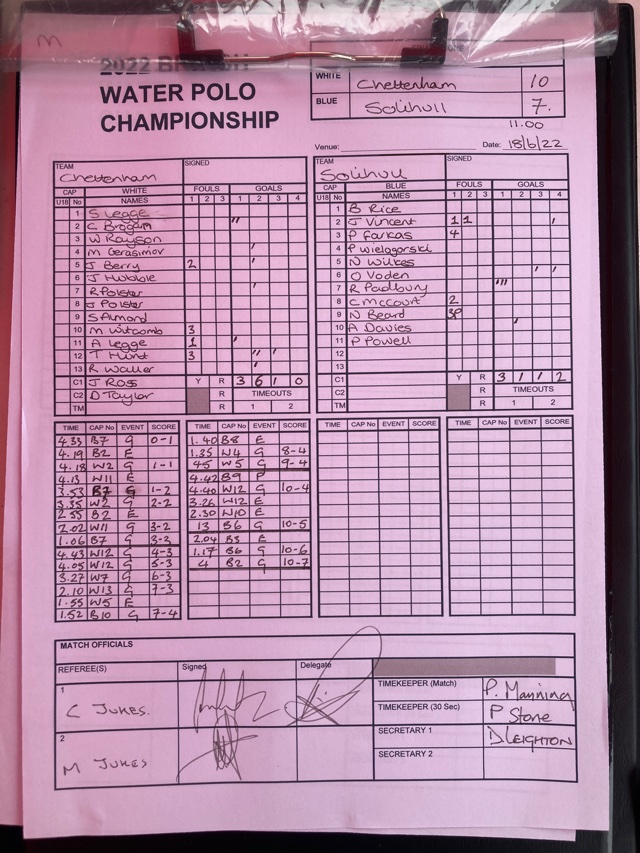 M
2022 BRITISH
WATER POLO
CHAMPIONSHIP
WHITE Cheltenham 10
BLUE Solihull 7.
11.00
Venue: Date: 18/6/22
TEAM Cheltenham SIGNED
CAP WHITE FOULS GOALS
U18 No NAMES 1 2 3 1 2 3 4
1 S Legge
2 C Brogan "
3 W Rayson
4 M Gerasimov '
5 J Berry 2 '
6 J Hubble
7 R Polster '
8 J Polster
9 S Almond
10 M Witcomb 3
11 A Legge 1 '
12 T Hunt 3 " '
13 R Waller '
C1 J Ross Y R 3 6 1 0
C2 D Taylor R TIMEOUTS
TM R 1 2
TEAM Solihull SIGNED
CAP BLUE FOULS GOALS
U18 No NAMES 1 2 3 1 2 3 4
1 B Rice
2 J Vincent 1 1 '
3 P Farkas 4
4 P Wielogorski
5 N Wilkes
6 O Voden ' '
7 R Padbury '''
8 C McCourt 2
9 N Beard 3P
10 A Davies '
11 P Powell
12
13
C1 Y R 3 1 1 2
C2 R TIMEOUTS
TM R 1 2
TIME CAP No EVENT SCORE
4.33 B7 G 0-1
4.19 B2 E
4.18 W2 G 1-1
4.13 W11 E
3.53 B7 G 1-2
3.35 W2 G 2-2
2.55 B2 E
2.02 W11 G 3-2
1.06 B7 G 3-3
4.43 W12 G 4-3
4.05 W12 G 5-3
3.27 W7 G 6-3
2.10 W13 G 7-3
1.55 W5 E
1.52 B10 G 7-4
TIME CAP No EVENT SCORE
1.40 B8 E
1.35 W4 G 8-4
45 W5 G 9-4
4.42 B9 P
4.40 W12 G 10-4
3.26 W12 E
2.30 W10 E
13 B6 G 10-5
2.04 B3 E
1.17 B6 G 10-6
4 B2 G 10-7
TIME CAP No EVENT SCORE
TIME CAP No EVENT SCORE
MATCH OFFICIALS
REFEREE(S) Signed Delegate
1 C JUKES.
2 M JUKES
TIMEKEEPER (Match) P. Manning
TIMEKEEPER (30 Sec) P Stone
SECRETARY 1 D LEIGHTON
SECRETARY 2